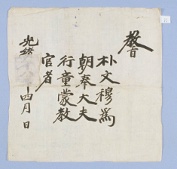 敎旨
朴文穆爲
朝奉大夫
行童蒙敎
官者
光緖 四月 日